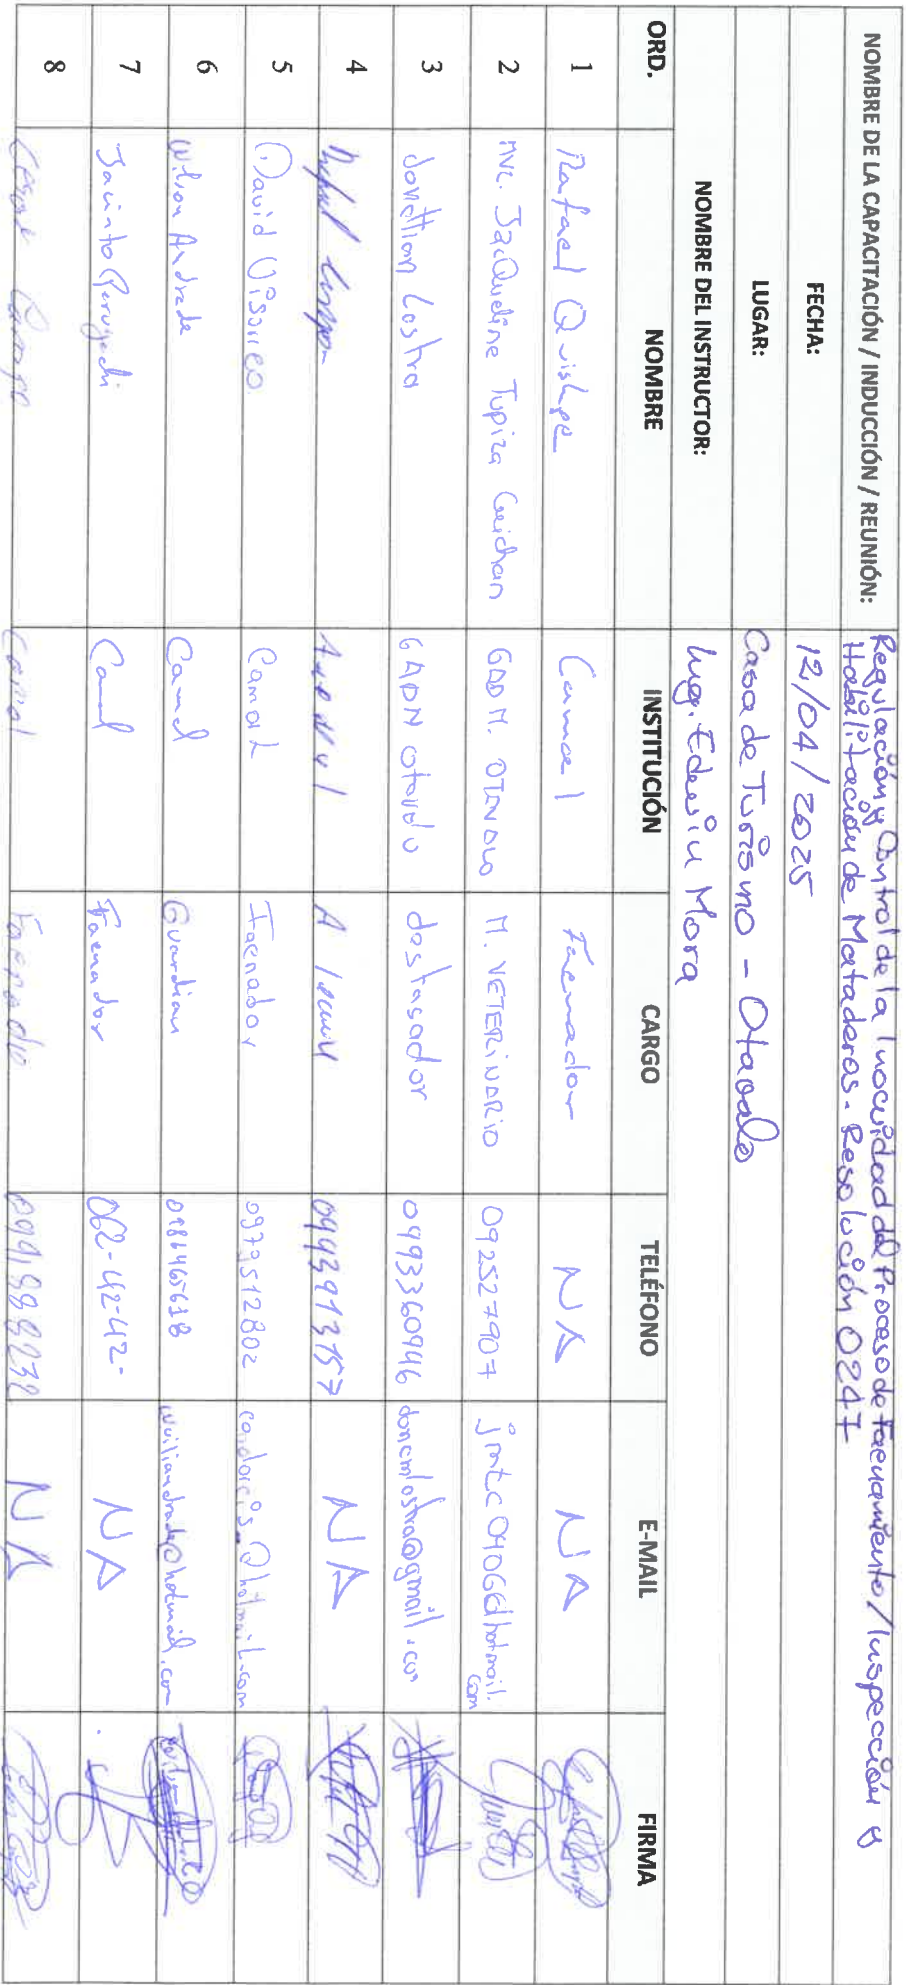 NOMBRE DE LA CAPACITACIÓN / INDUCCIÓN / REUNIÓN: Regulación y Control de la Inocuidad del Proceso de Faenamiento/Inspección y
Habilitación de Mataderos. Resolución 0247
FECHA: 12/04/2025
LUGAR: Casa de Turismo - Otavalo
NOMBRE DEL INSTRUCTOR: Ing. Edwin Mora
ORD. NOMBRE INSTITUCIÓN CARGO TELÉFONO E-MAIL FIRMA
1 Rafael Quishpe Camal Faenador NA NA
2 MVC. JacQueline Tupiza Guichan GADM. OTAVALO M. VETERINARIO 092527907 jmtc0406@hotmail.com
3 Lostra Otavalo destasador 0993360946
4 0993913757 NA
5 David Camal Faenador 0979512802
6 Wilson Andrade Camal Guardian
7 Jacinto Perugachi Camal Faenador 062-42-42- NA
8 Camal NA